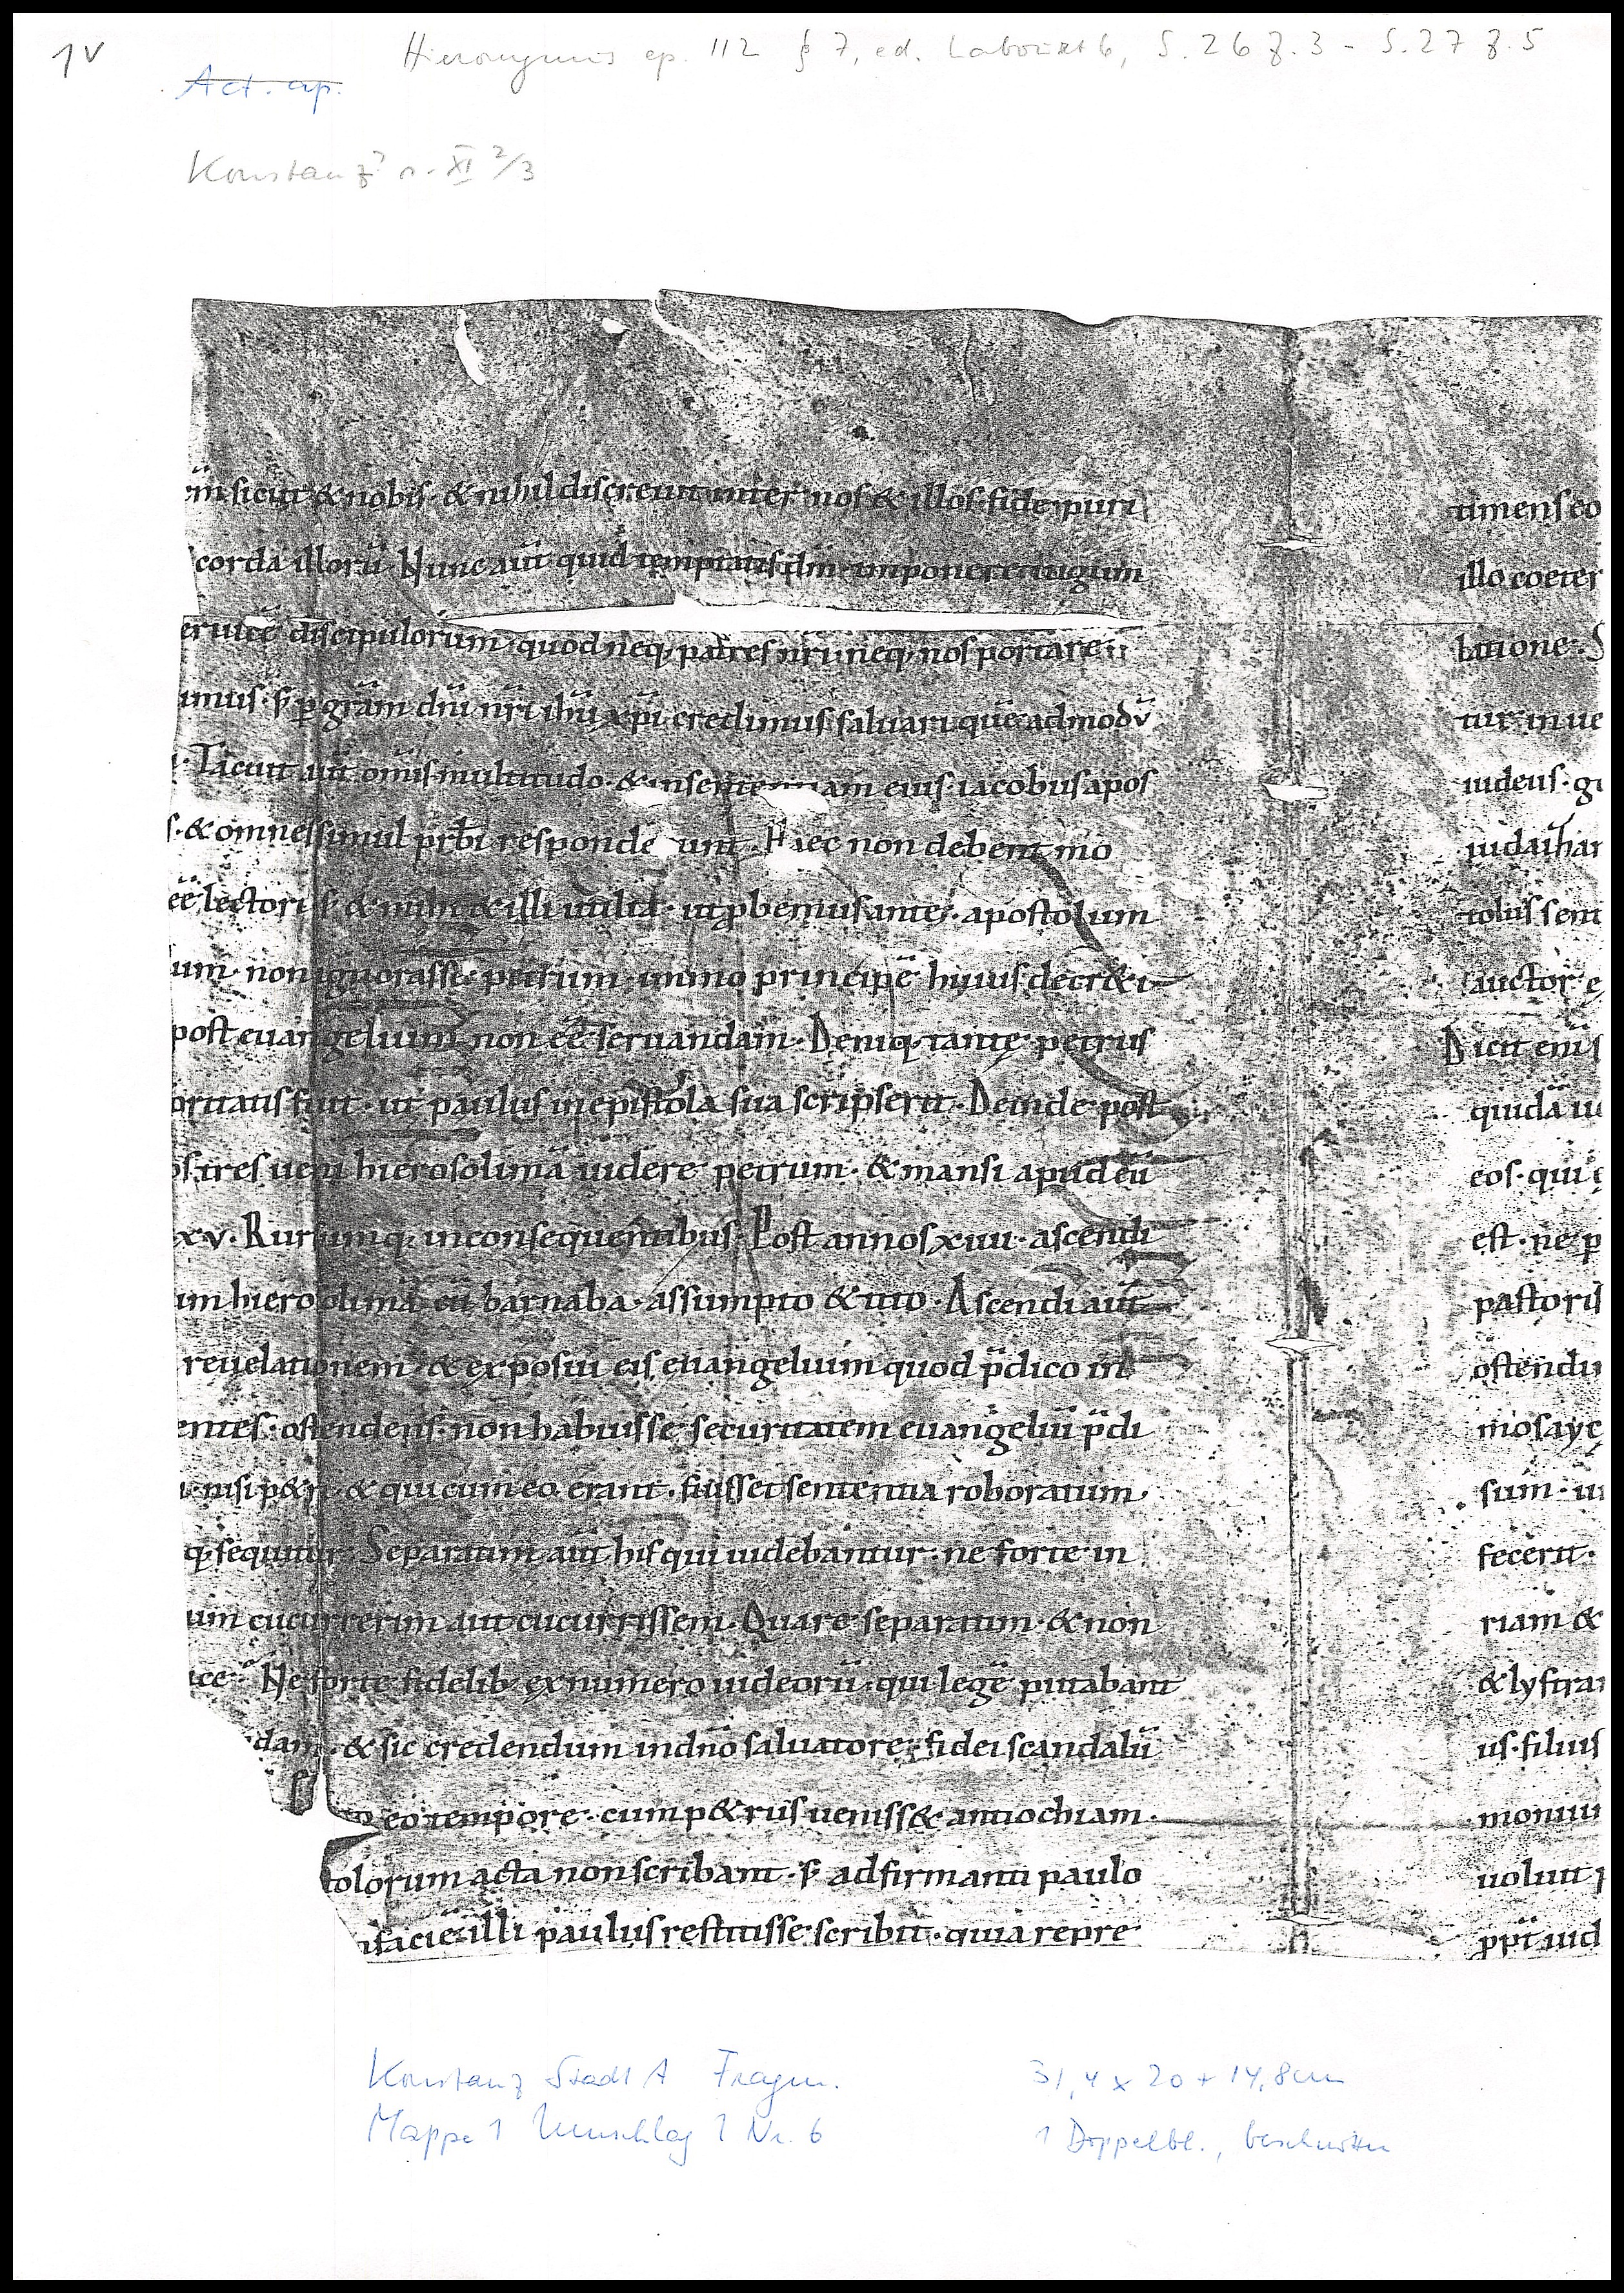 1v
Hieronymus ep. 112 § 7, ed. Labourt 6, S. 26 Z. 3 - S. 27 Z. 5
Act. ap.
Konstanz? s. XI 2/3
sicut & nobis · & nihil discreuit inter nos & illos · fide puri
corda illorū Nunc aūt quid temptatis dm̄ · imponere iugum
eruicē discipulorum · quod neq; patres nr̄i neq; nos portare
imus · s; p̲ gr̄am dn̄i nr̄i ihū xp̄i credimus saluari quēadmodū
Tacuit aūt om̄is multitudo · & in sententiam eius · iacobus apos
s · & omnes simul pr̄bi responderunt · Haec non debent mo
eē lectori s; & mihi & illi utilia · ut p̲bemus ante · apostolum
um · non ignorasse · petrum · immo principē huius decr&i
post euangelium non eē seruandam · Deniq; tantę petrus
oritatis fuit · ut paulus in epistola sua scripserit · Deinde post
os tres ueni hierosolimā uidere petrum · & mansi apud eū
xv · Rursumq; in consequentibus · Post annos xiiii · ascendi
um hierosolimā cū barnaba · assumpto & tito · Ascendi aūt
reuelationem · & exposui eis euangelium quod p̄dico in
entes · ostendens · non habuisse securitatem euangelii p̄di
i · nisi p&ri · & qui cum eo erant · fuisset sententia roboratum ·
q; sequitur Separatim aūt his qui uidebantur · ne forte in
um cucurrerim aut cucurrissem · Quare separatim · & non
ice · Ne forte fidelib; ex numero iudeorū · qui legē putabant
dam · & sic credendum in dn̄o saluatore · fidei scandalū
eo tempore · cum p&rus ueniss& antiochiam ·
tolorum acta non scribant · s; adfirmanti paulo
facie illi paulus restitisse scribit · quia repre
timens eo
illo coeter
latione · S
tur in ue
iudeus · g
iudaihar
tolus sent
auctor e
Dicit eni
quidā iu
eos · qui
est · ne p
pastoris
ostendi
mosayc
sum · ui
fecerit ·
riam &
& lystra
us · filius
moniu
uoluit
iud
Konstanz StadtA Fragm.
Mappe 1 Umschlag 1 Nr. 6
31,4 x 20 + 14,8cm
1 Doppelbl., beschnitten